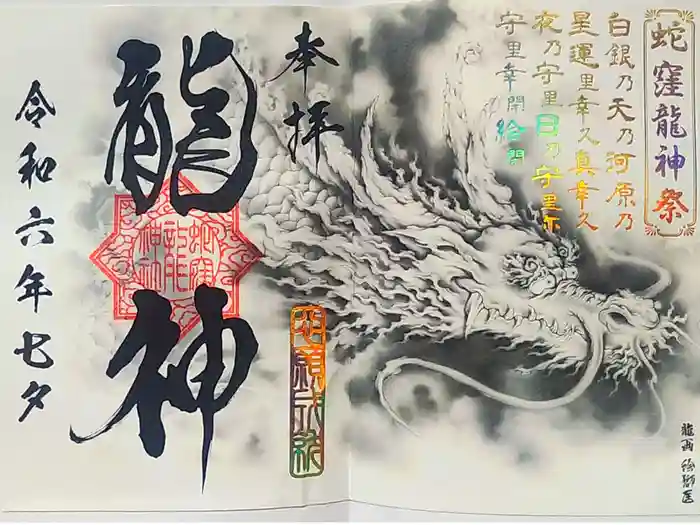 蛇窪龍神祭
白銀乃天乃河原乃
星運里幸久真幸久
夜乃守里日乃守里尓
守里幸開給閇
奉拝
龍神
蛇窪
龍神
心願成就
令和六年七夕
龍画